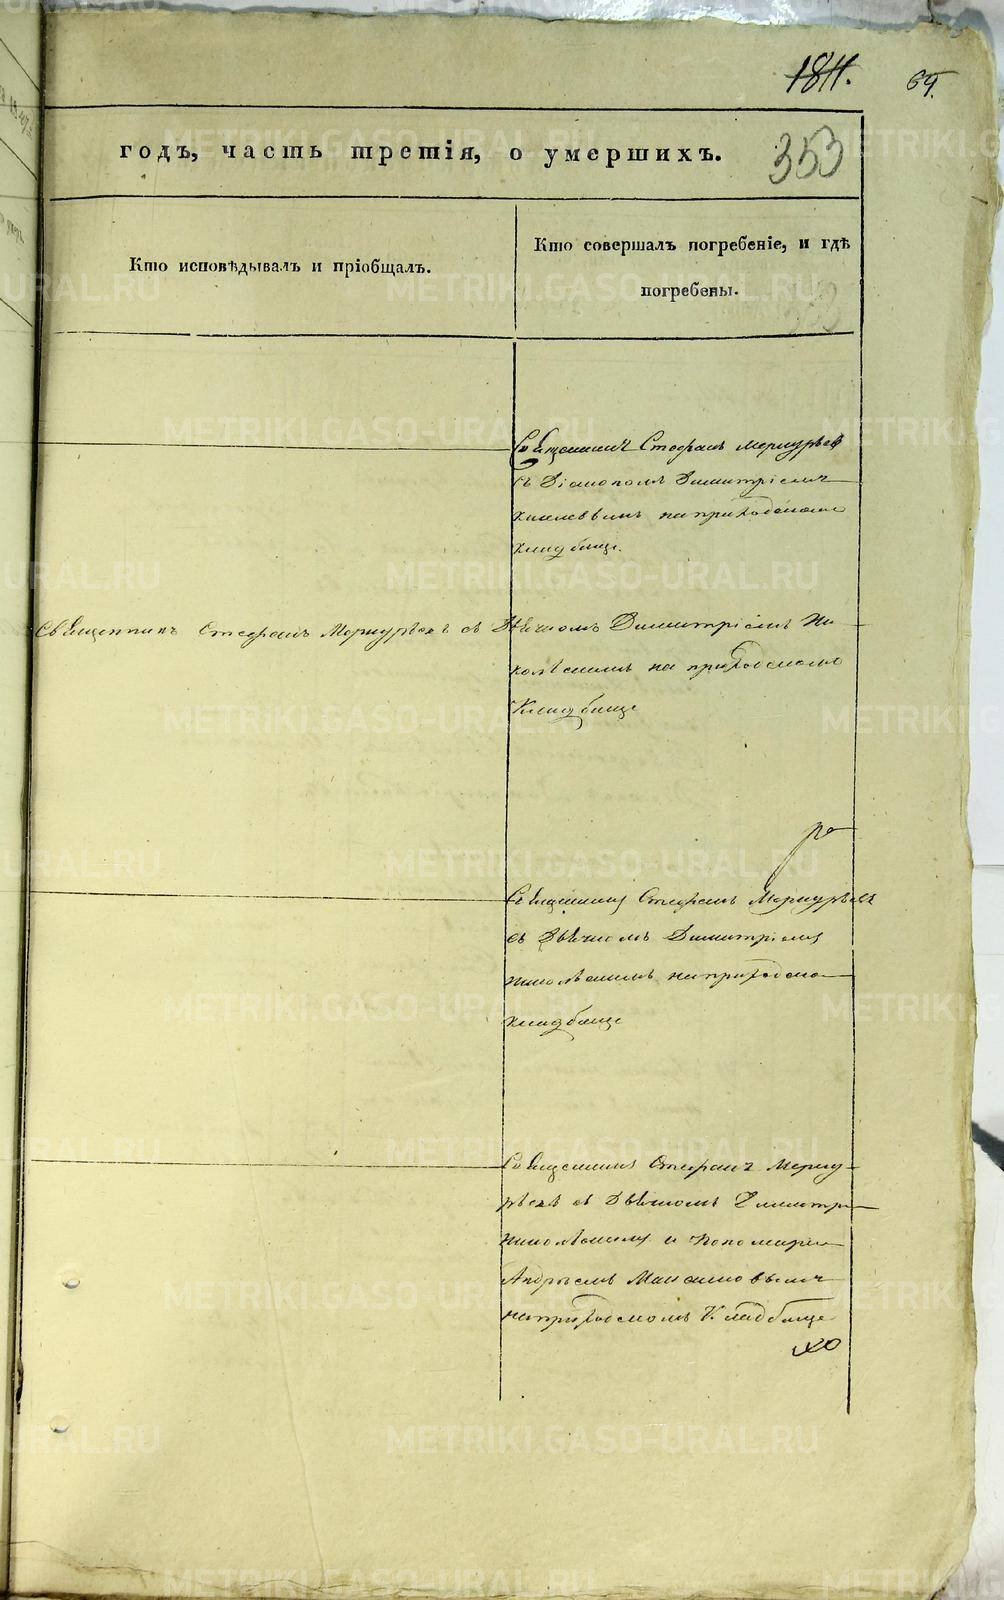 1811.
64.
годъ, часть третія, о умершихъ.
353
Кто исповѣдывалъ и пріобщалъ.
Кто совершалъ погребеніе, и гдѣ
погребены.
Священникъ Стефанъ Меркурьевъ
Димитріемъ
на приходскомъ
кладбище.
Священникъ Стефанъ Меркурьевъ съ Дьячкомъ Димитріемъ Ни
на приходскомъ
Кладбище
Священникъ Стефанъ Меркурьевъ
съ Дьячкомъ Димитріемъ
на приходско
кладбище
Священникъ Стефанъ Мерку
рьевъ съ Дьячкомъ Димитрі
и Пономаремъ
Андреемъ
на приходскомъ Кладбище
METRIKI.GASO-URAL.RU